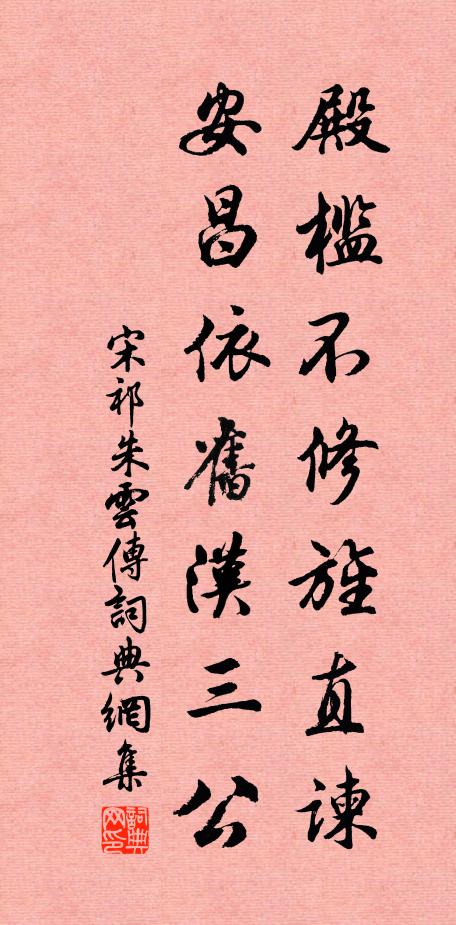 殿檻不修旌直諫
安昌依舊漢三公
宋祁朱雲傳詞典網集
詞典网印